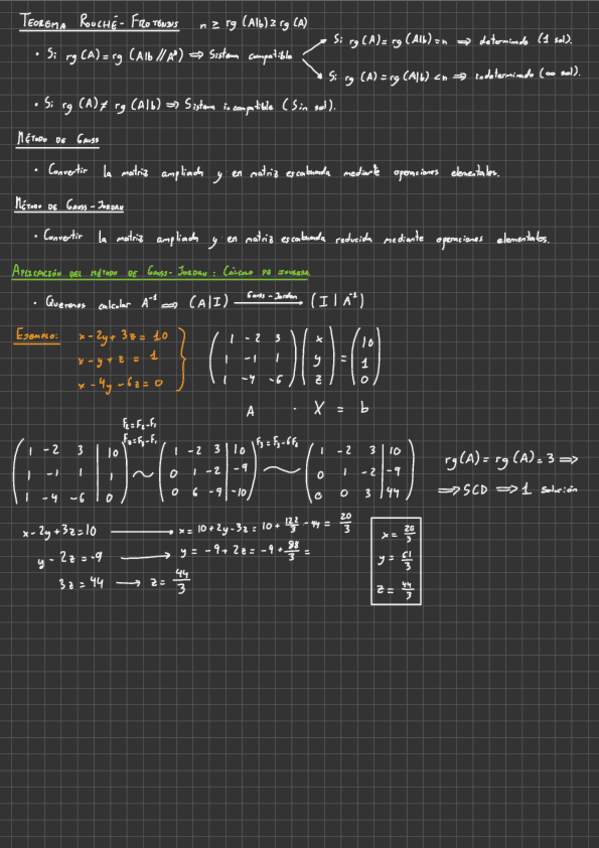 TEOREMA ROUCHÉ-FROTENIUS n ≥ rg(A|b) ≥ rg(A)
· Si rg(A) = rg(A|b // A*) ⟹ Sistema compatible
Si rg(A) = rg(A|b) = n ⟹ determinado (1 sol).
Si rg(A) = rg(A|b) < n ⟹ indeterminado (∞ sol).
· Si rg(A) ≠ rg(A|b) ⟹ Sistema incompatible (Sin sol).
MÉTODO DE GAUSS
· Convertir la matriz ampliada y en matriz escalonada mediante operaciones elementales.
MÉTODO DE GAUSS-JORDAN
· Convertir la matriz ampliada y en matriz escalonada reducida mediante operaciones elementales.
APLICACIÓN DEL MÉTODO DE GAUSS-JORDAN: CÁLCULO DE INVERSA
· Queremos calcular A⁻¹ ⟹ (A|I) Gauss-Jordan → (I|A⁻¹)
EJEMPLO: x-2y+3z=10
x-y+z=1
x-4y-6z=0
1 -2 3 x 10
1 -1 1 y = 1
1 -4 -6 z 0
A · X = b
F₂=F₂-F₁
F₃=F₃-F₁
F₃=F₃-6F₂
1 -2 3 | 10 ~ 1 -2 3 | 10 ~ 1 -2 3 | 10
1 -1 1 | 1 0 1 -2 | -9 0 1 -2 | -9
1 -4 -6 | 0 0 6 -9 | -10 0 0 3 | 44
rg(A) = rg(A) = 3 ⟹
⟹ SCD ⟹ 1 solución
x-2y+3z=10 → x=10+2y-3z=10+122/3-44=20/3
y-2z=-9 → y=-9+2z=-9+88/3=
3z=44 → z=44/3
x=20/3
y=61/3
z=44/3